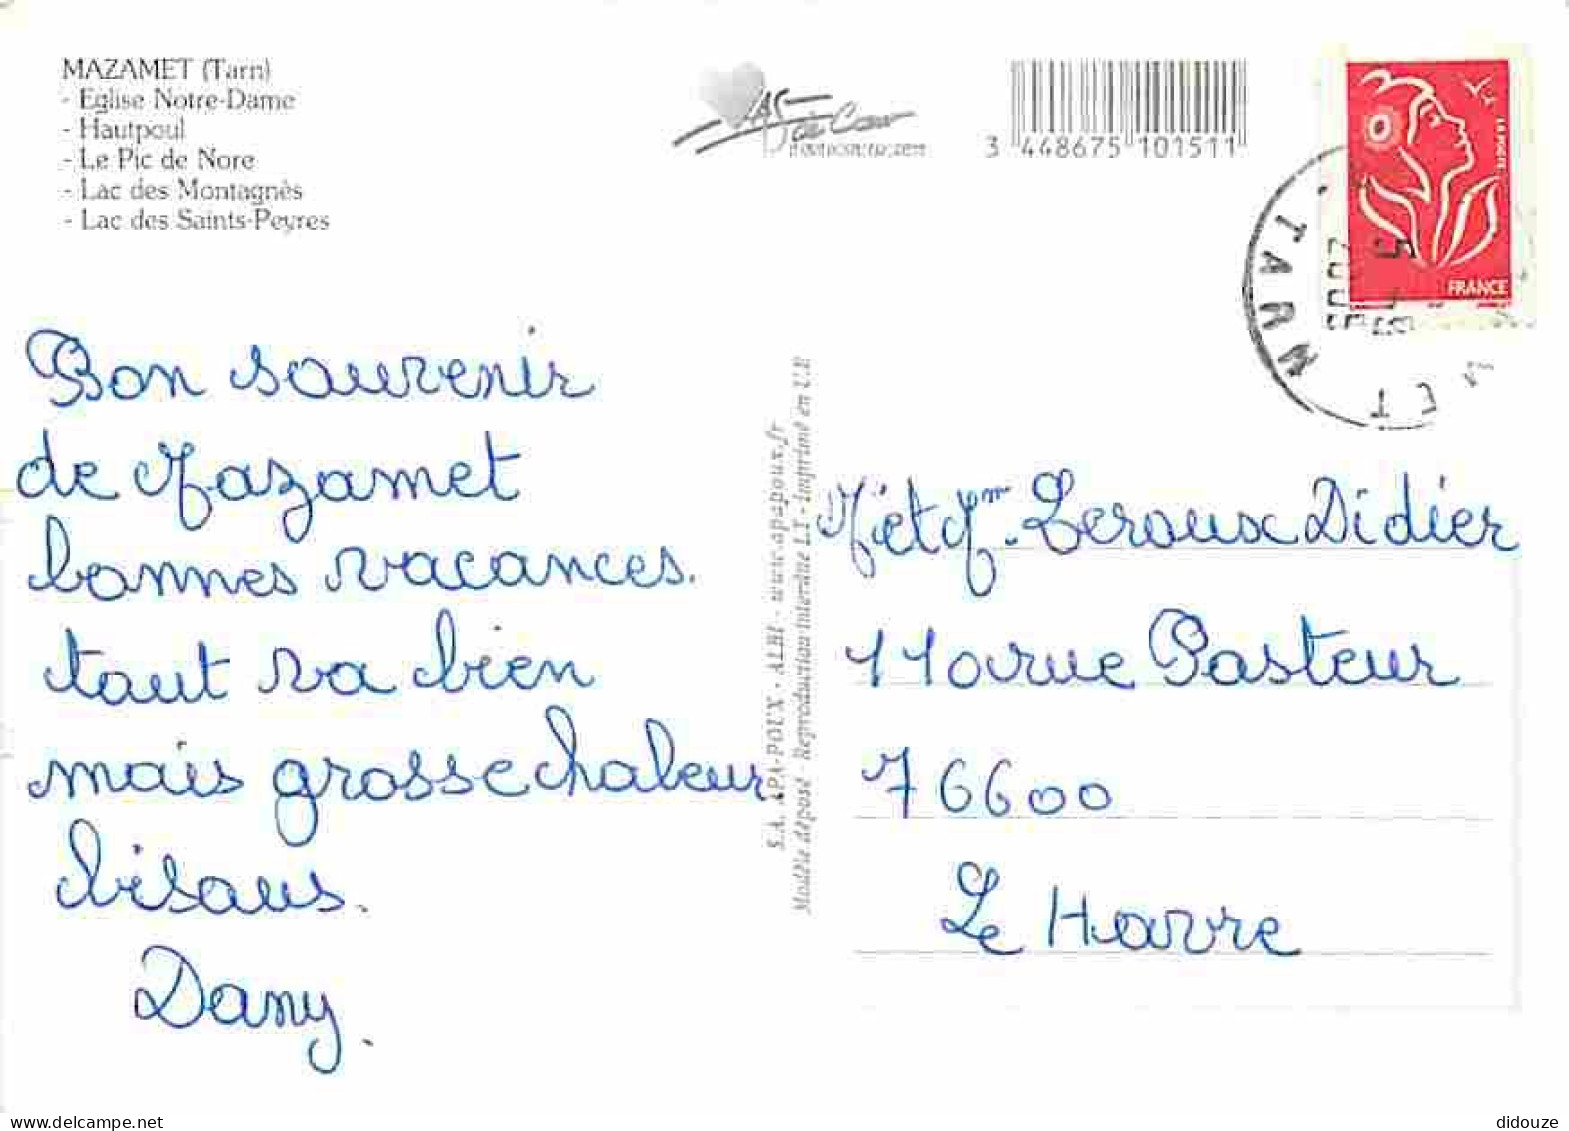 MAZAMET (Tarn)
- Eglise Notre-Dame
- Hautpoul
- Le Pic de Nore
- Lac des Montagnès
- Lac des Saints-Peyres
As de Coeur
3 448675 101511
LA POSTE
FRANCE
TARN
Bon souvenir
de Mazamet
bonnes vacances.
tout va bien
mais grosse chaleur
bisous.
Dany.
S.A. APA-POUX - ALBI - www.apapoux.fr
Modèle déposé - Reproduction interdite - Imprimé en U.E
M et Mme Leroux Didier
110 rue Pasteur
76600
Le Havre
delcampe.net
didouze